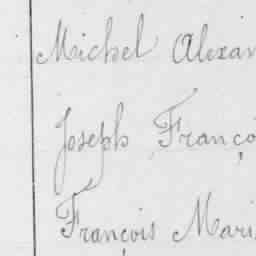 Michel Alexan
Joseph Franço
François Mari